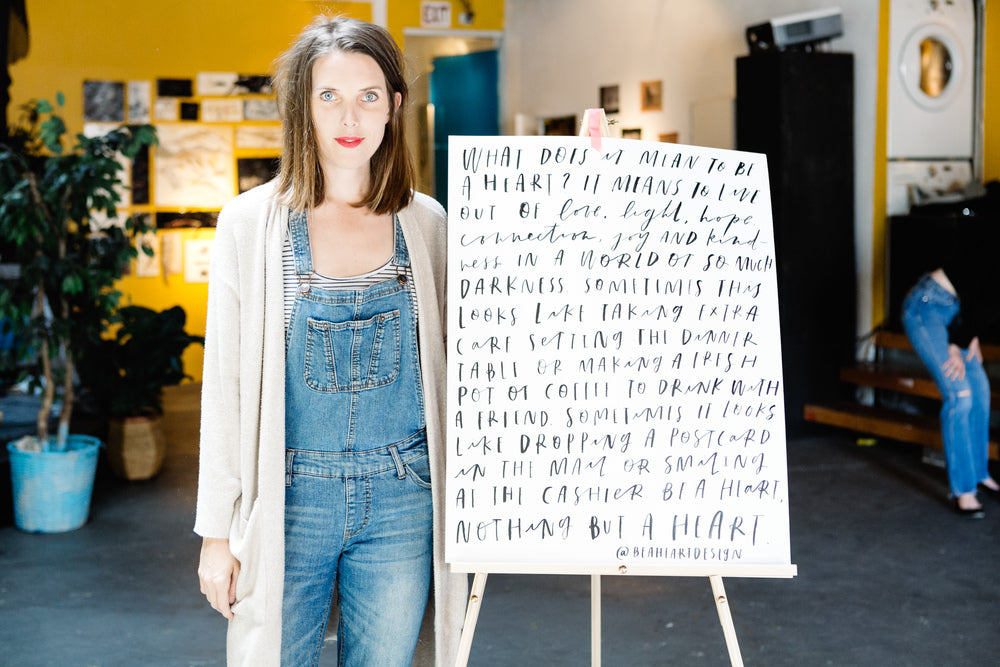 EXIT
WHAT DOES IT MEAN TO BE
A HEART? IT MEANS TO LIVE
OUT OF love, light, hope
connection, joy AND kind-
ness IN A WORLD OF SO MUCH
DARKNESS. SOMETIMES THIS
LOOKS LIKE TAKING EXTRA
CARE SETTING THE DINNER
TABLE OR MAKING A FRESH
POT OF COFFEE TO DRINK WITH
A FRIEND. SOMETIMES IT LOOKS
LIKE DROPPING A POSTCARD
IN THE MAIL OR SMILING
AT THE CASHIER. BE A HEART,
NOTHING BUT A HEART.
@BEAHEARTDESIGN